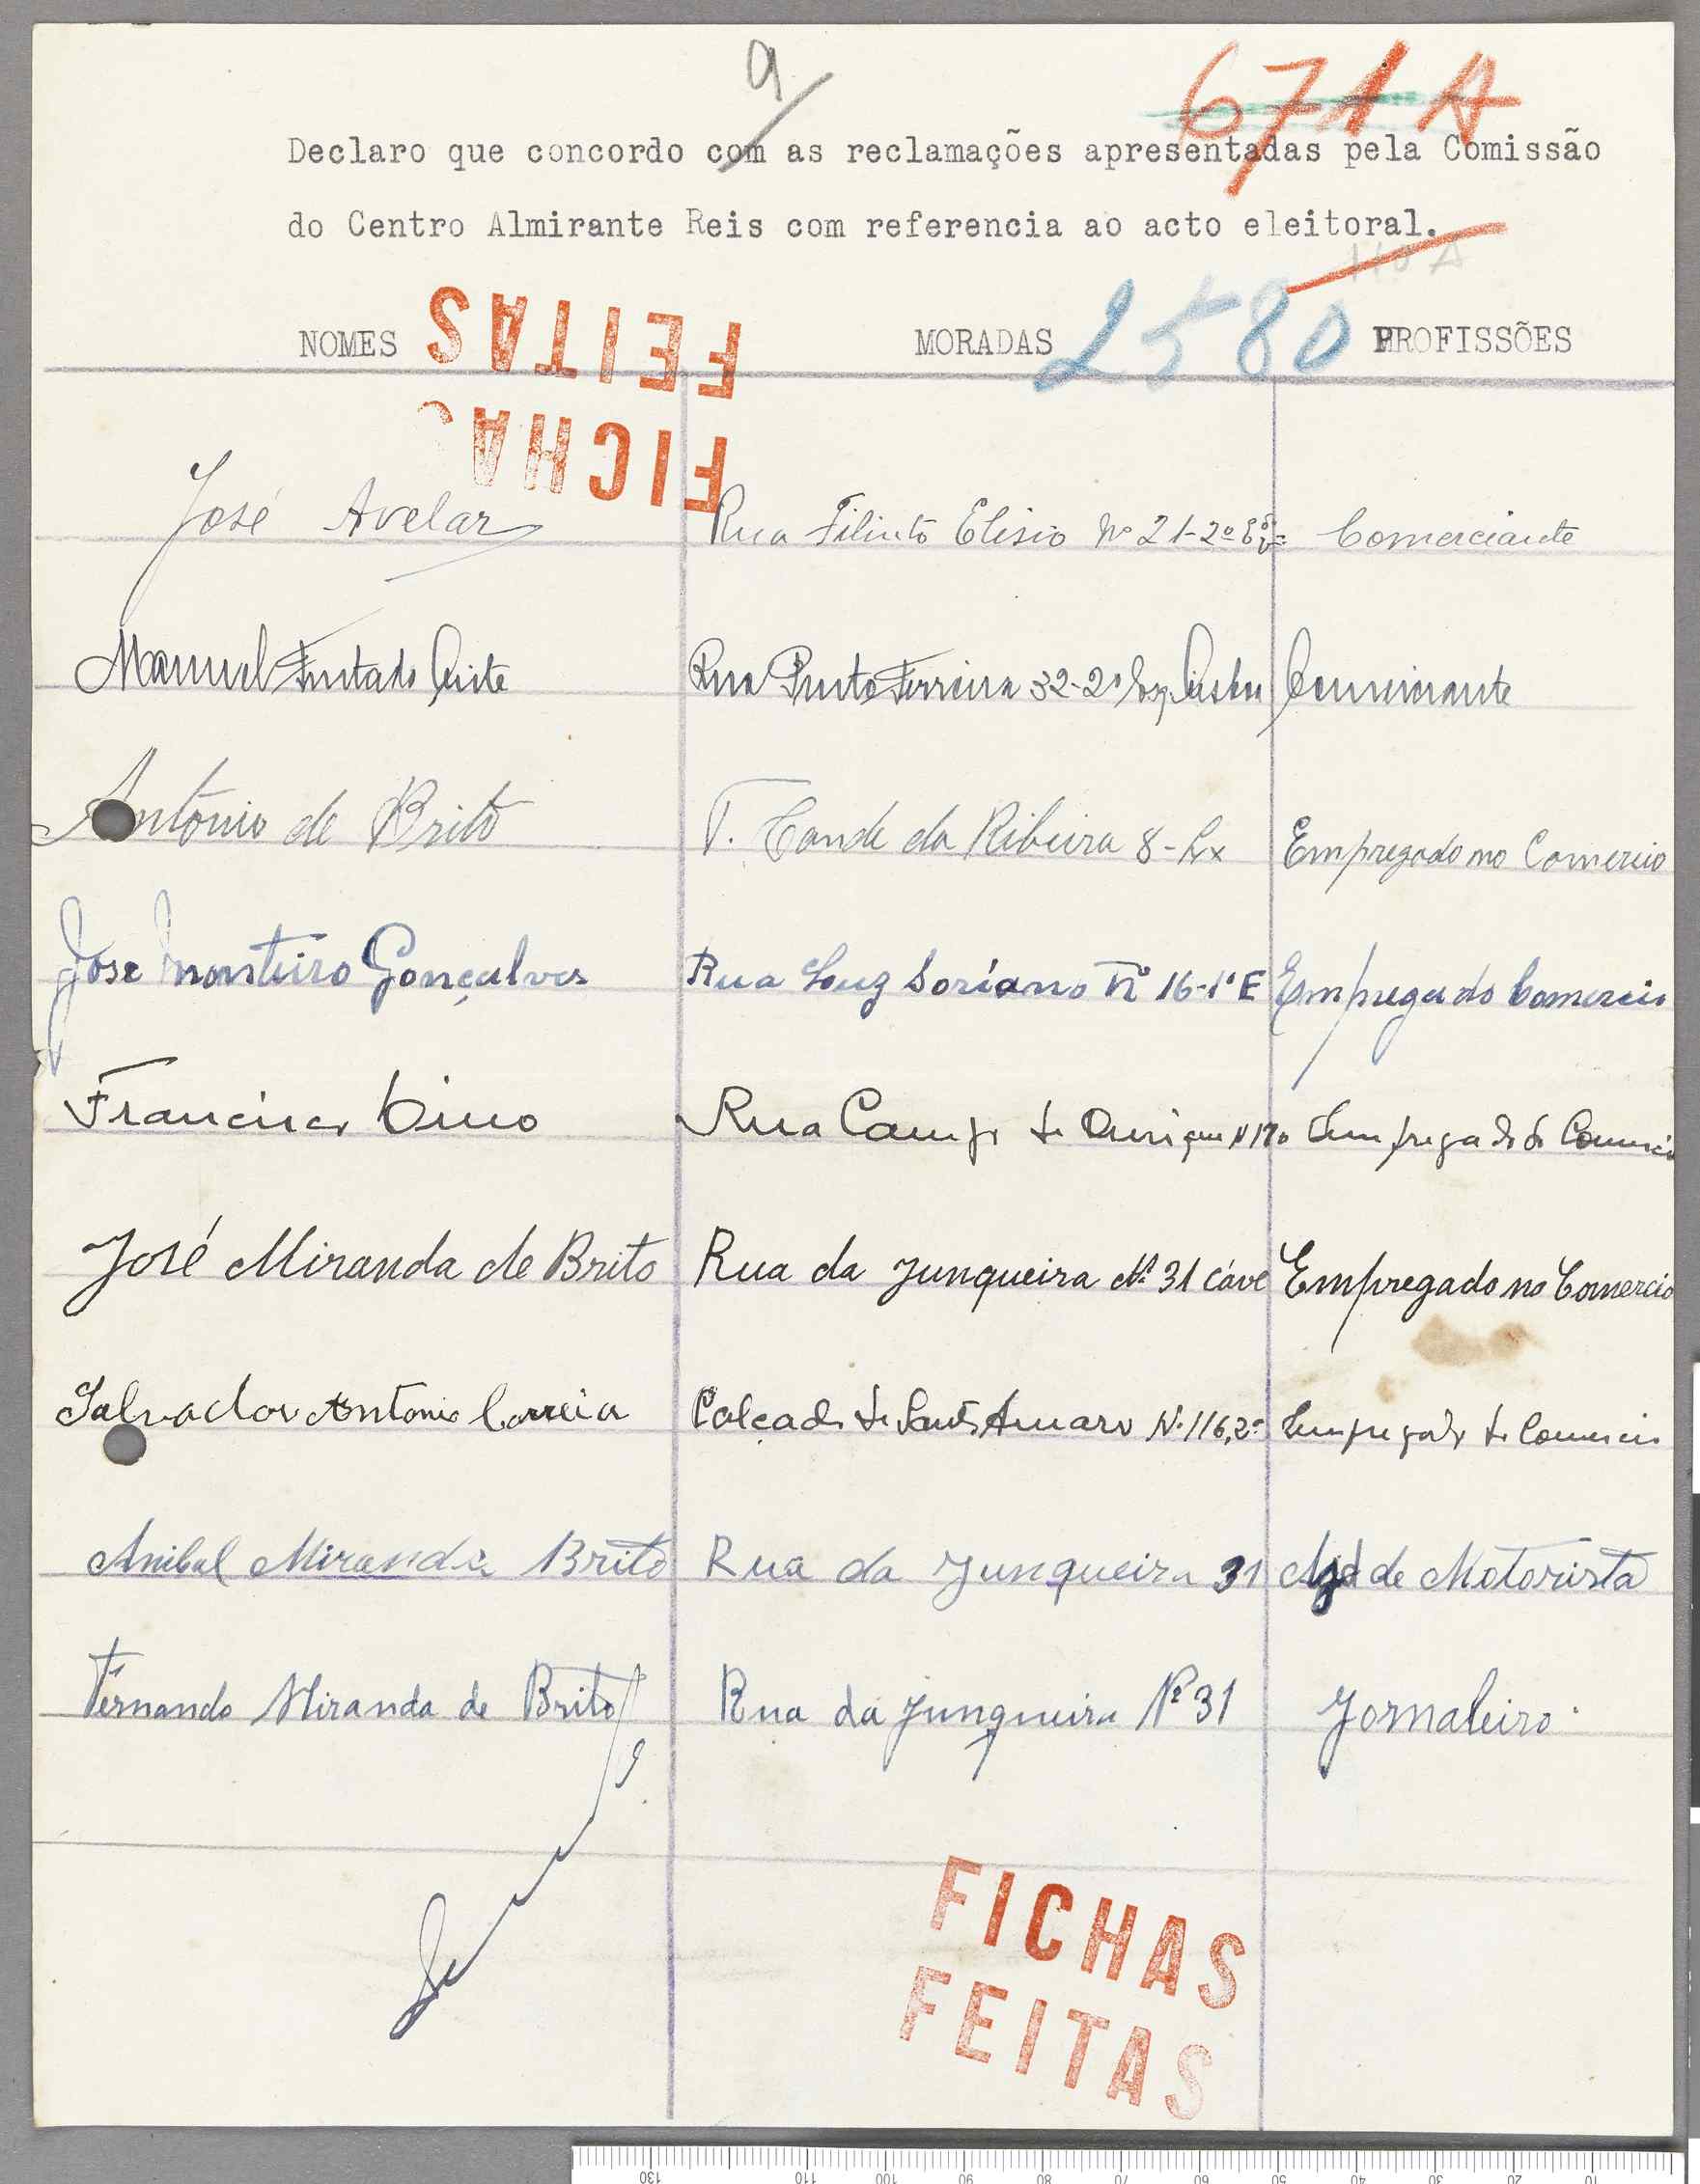 9
671A
Declaro que concordo com as reclamações apresentadas pela Comissão
do Centro Almirante Reis com referencia ao acto eleitoral.
110 A
2580
NOMES MORADAS PROFISSÕES
FICHAS
FEITAS
José Avelar Rua Filinto Elisio Nº 21-2º Comerciante
Manuel Furtado Leite Rua Pinto Ferreira 32-2º Esq Lisboa Comerciante
António de Brito T. Conde da Ribeira 8-Lx Empregado no Comercio
Jose Monteiro Gonçalves Rua Luz Soriano nº 16-1º E Empregado Comercio
Francisco Rua Campo de Ourique Nº 170 Empregado de Comercio
José Miranda de Brito Rua da Junqueira Nº 31 cave Empregado no Comercio
Salvador Antonio Correia Calçada de Santo Amaro Nº 116,2º Empregado de Comercio
Anibal Miranda Brito Rua da Junqueira 31 Ajd de Motorista
Fernando Miranda de Brito Rua da Junqueira Nº 31 Jornaleiro
9
FICHAS
FEITAS
130 110 100 90 80 70 60 50 40 30 20 10